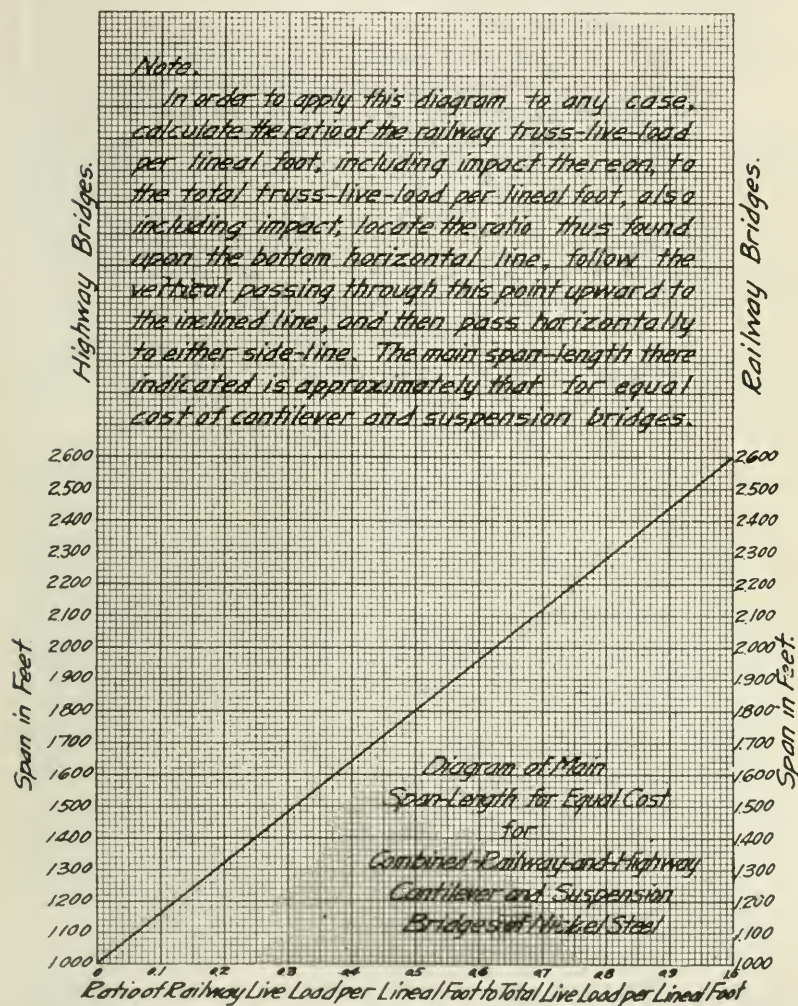 Note.
In order to apply this diagram to any case,
calculate the ratio of the railway truss-live-load
per lineal foot, including impact thereon, to
the total truss-live-load per lineal foot, also
including impact, locate the ratio thus found
upon the bottom horizontal line, follow the
vertical passing through this point upward to
the inclined line, and then pass horizontally
to either side-line. The main span-length there
indicated is approximately that for equal
cost of cantilever and suspension bridges.
Highway Bridges.
Railway Bridges.
2,600
2,500
2,400
2,300
2,200
2,100
2,000
1,900
1,800
1,700
1,600
1,500
1,400
1,300
1,200
1,100
1,000
Span in Feet
2,600
2,500
2,400
2,300
2,200
2,100
2,000
1,900
1,800
1,700
1,600
1,500
1,400
1,300
1,200
1,100
1,000
Span in Feet.
Diagram of Main
Span-Length for Equal Cost
for
Combined-Railway-and-Highway
Cantilever and Suspension
Bridges of Nickel Steel
0. 0.1 0.2 0.3 0.4 0.5 0.6 0.7 0.8 0.9
Ratio of Railway Live Load per Lineal Foot to Total Live Load per Lineal Foot